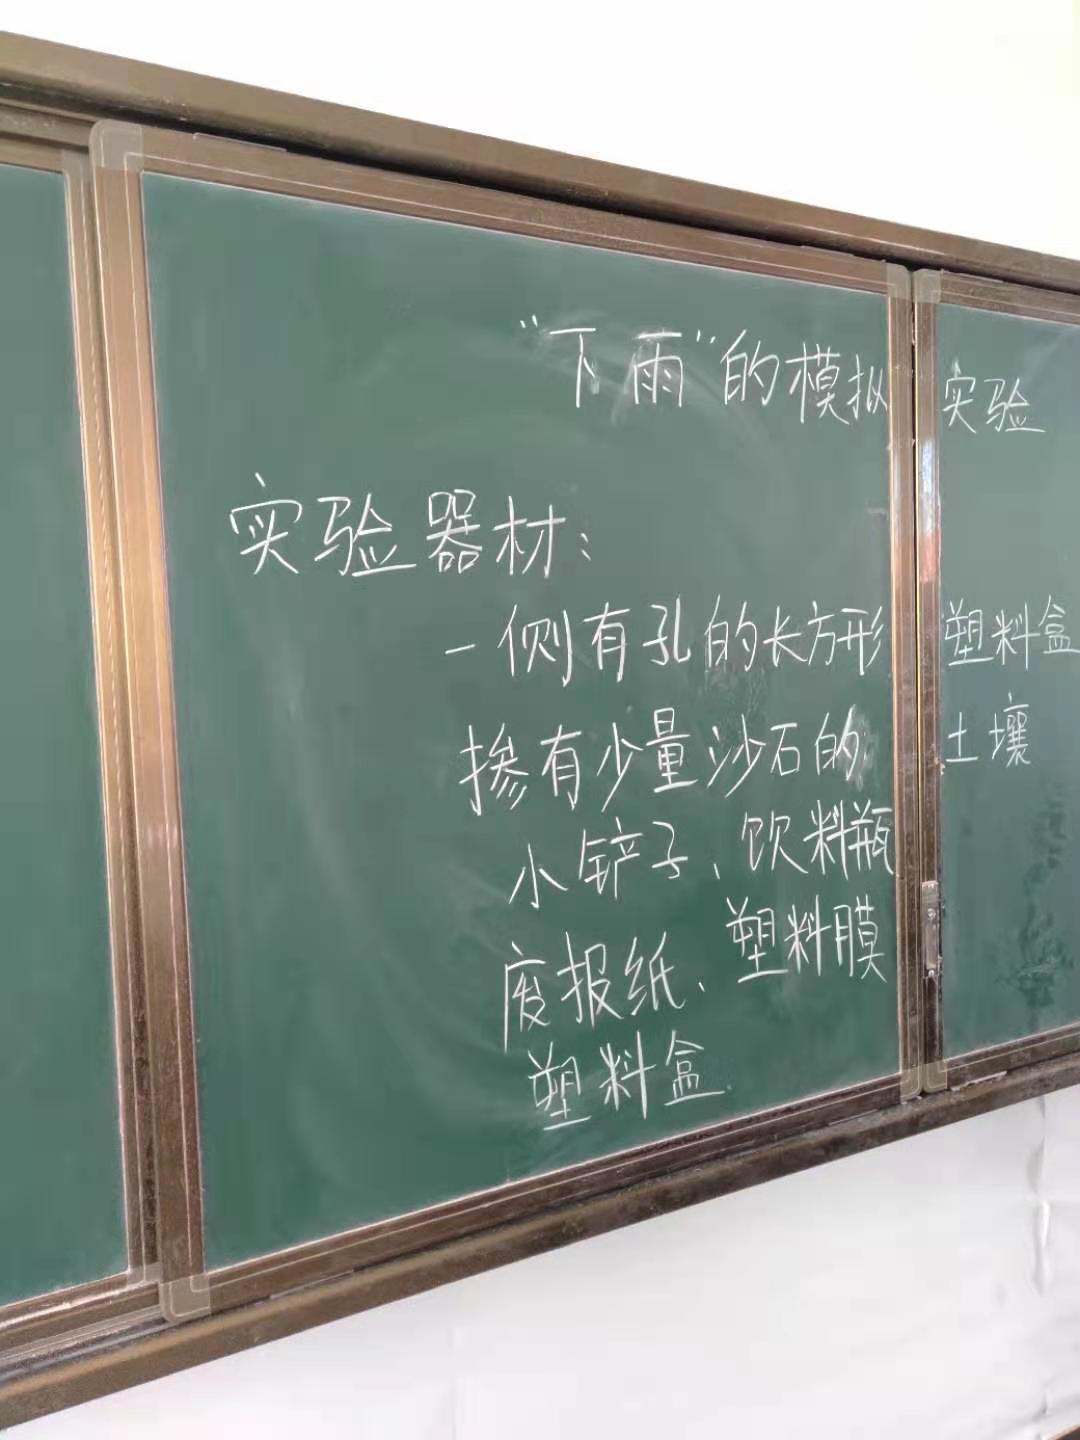 “下雨”的模拟实验
实验器材：
一侧有孔的长方形塑料盒
掺有少量沙石的土壤
小铲子、饮料瓶
废报纸、塑料膜
塑料盒